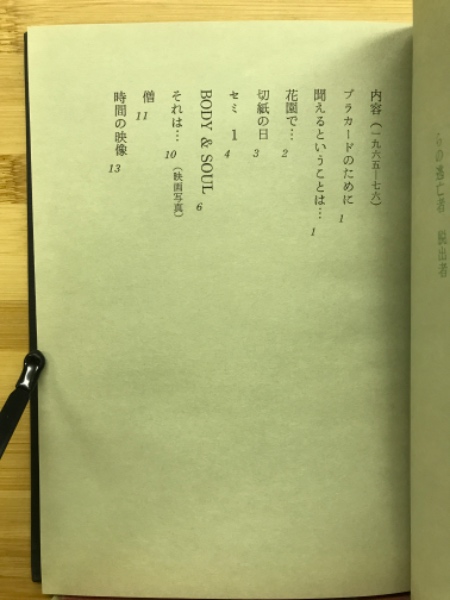 らの逃亡者 脱出者
内容(一九六五—七六)
プラカードのために 1
聞えるということは… 1
花園で… 2
切紙の日 3
セミ 1 4
BODY & SOUL 6
それは… 10 (映画写真)
僧 11
時間の映像 13